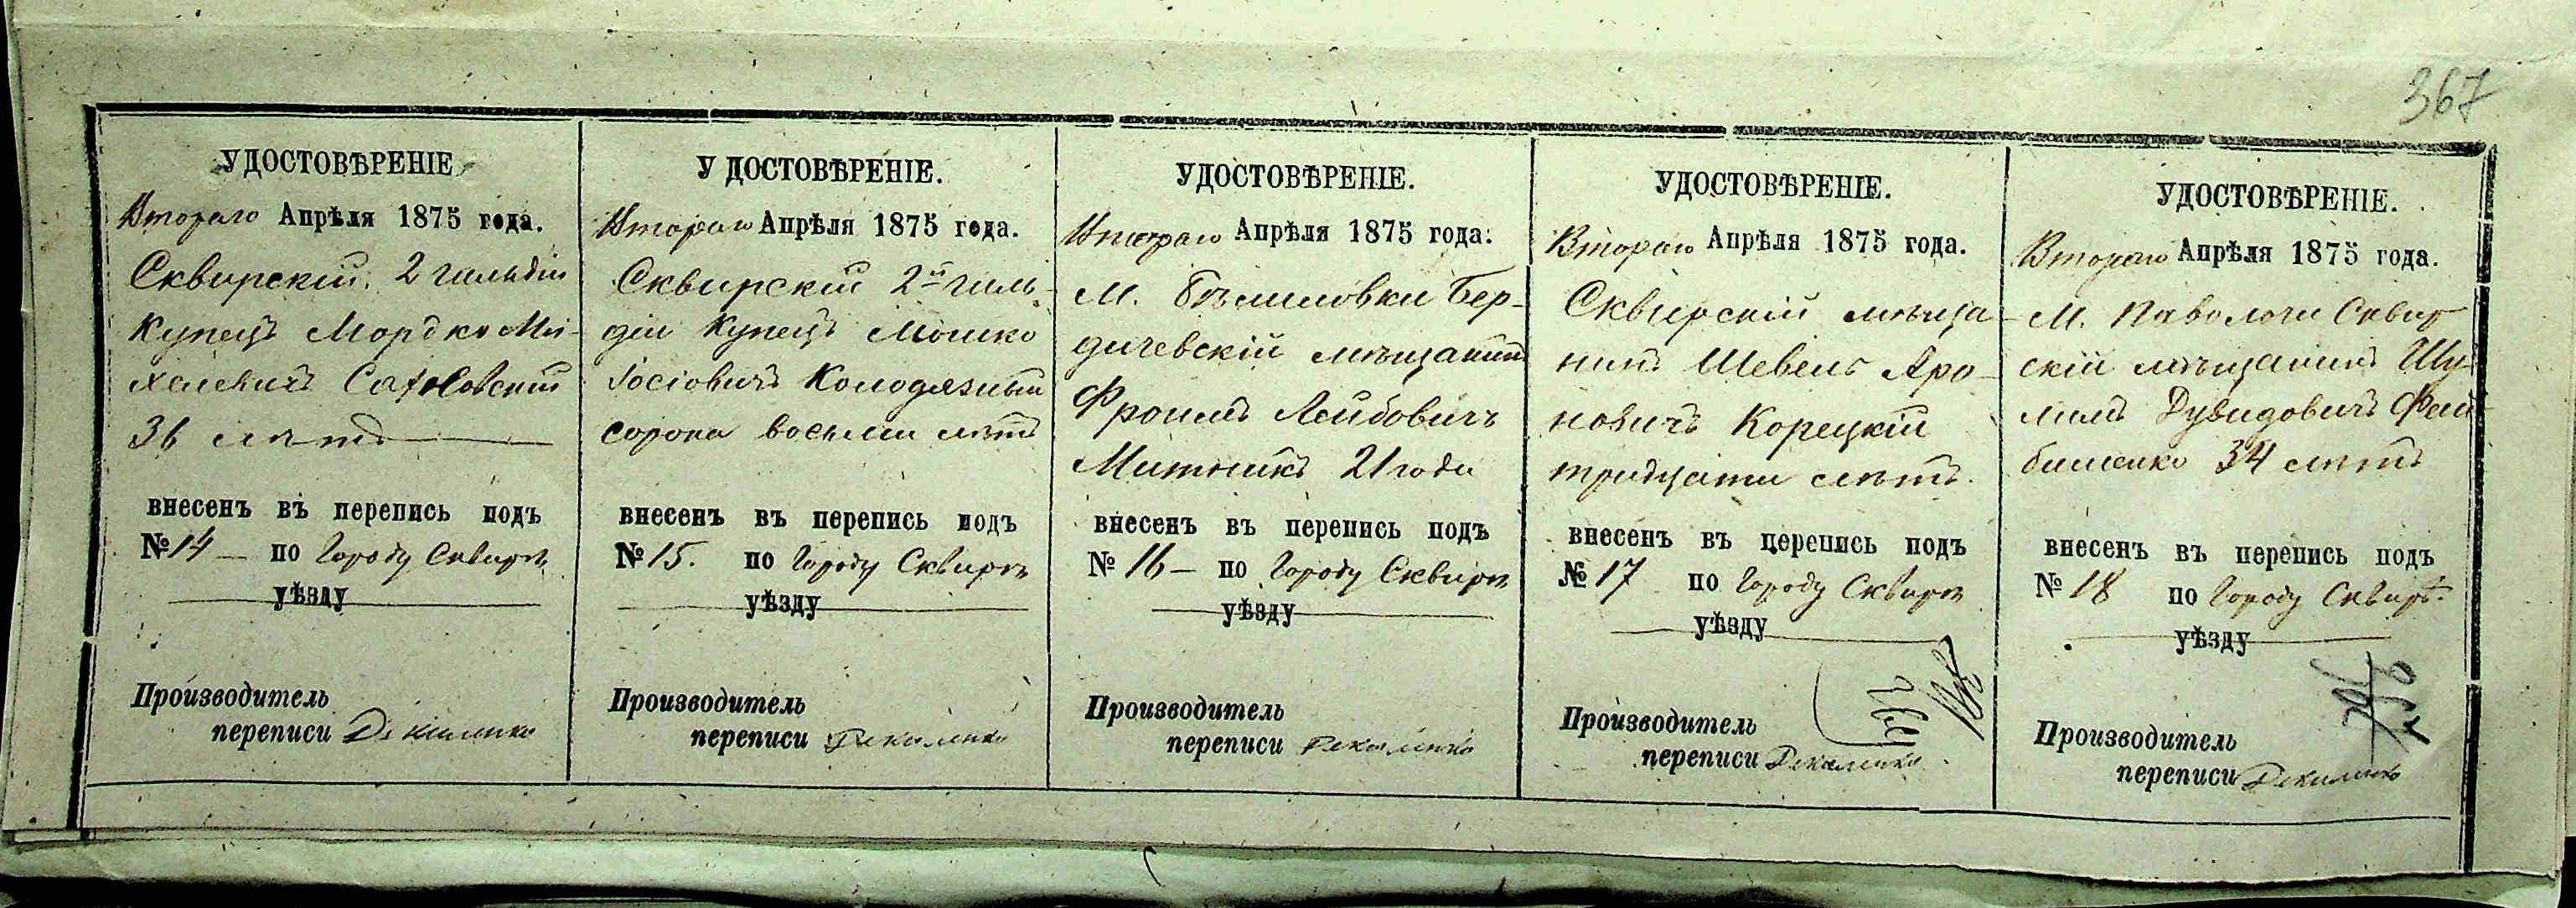 367
УДОСТОВѢРЕНІЕ.
Втораго Апрѣля 1875 года.
Сквирскій 2 гильдіи
Купецъ Мордко Ми-
хелевичъ
36 лѣтъ
внесенъ въ перепись подъ
№ 14 — по Городу Сквирѣ
уѣзду
Производитель
переписи
У ДОСТОВѢРЕНІЕ.
Втораго Апрѣля 1875 года.
Сквирскій 2й гиль-
діи Купецъ Мошко
Іосіовичъ Колодязный
сорока восьми лѣтъ
внесенъ въ перепись подъ
№ 15. по Городу Сквирѣ
уѣзду
Производитель
переписи
УДОСТОВѢРЕНІЕ.
Втораго Апрѣля 1875 года.
М. Бѣлиловки Бер-
дичевскій мѣщанинъ
Фроимъ Лейбовичъ
Митникъ 21 года
внесенъ въ перепись подъ
№ 16 — по Городу Сквирѣ
уѣзду
Производитель
переписи
УДОСТОВѢРЕНІЕ.
Втораго Апрѣля 1875 года.
Сквирскій мѣща-
нинъ Шевель Аро-
новичъ Корецкій
тридцати лѣтъ.
внесенъ въ перепись подъ
№ 17 по Городу Сквирѣ
уѣзду
Производитель
переписи
УДОСТОВѢРЕНІЕ.
Втораго Апрѣля 1875 года.
М. Паволочи Сквир
скій мѣщанинъ Шу-
лимъ Дувидовичъ Фай-
бишенко 34 лѣтъ
внесенъ въ перепись подъ
№ 18 по Городу Сквирѣ.
уѣзду
Производитель
переписи